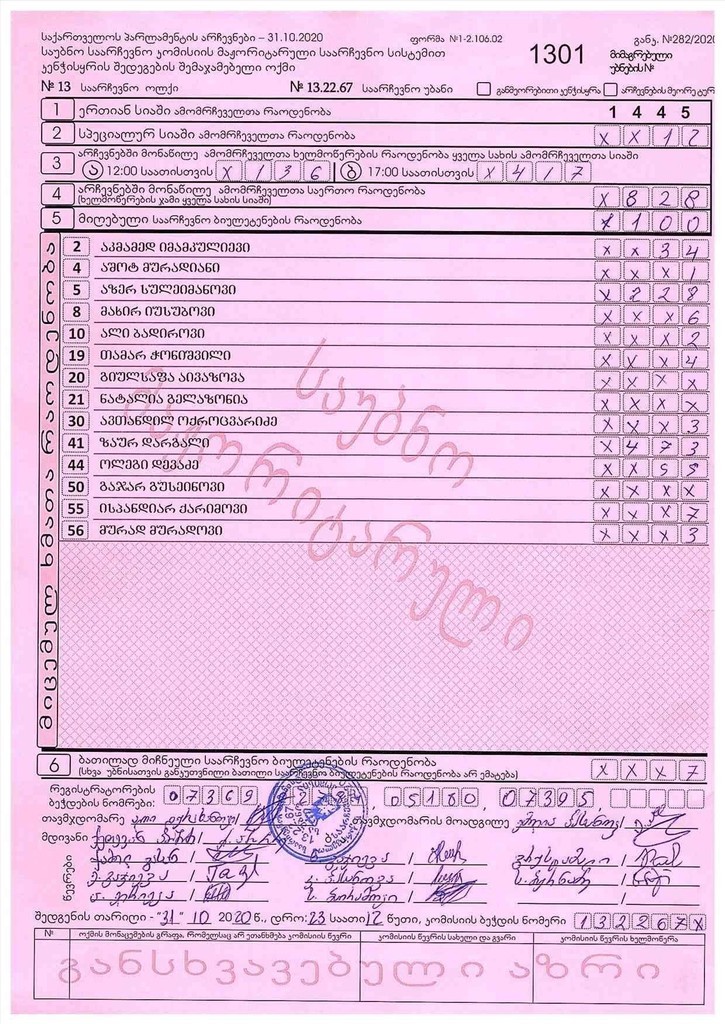 საქართველოს პარლამენტის არჩევნები – 31.10.2020 ფორმა №1-2.106.02 განკ. №282/2020
საუბნო საარჩევნო კომისიის მაჟორიტარული საარჩევნო სისტემით 1301 მიმაგრებული
კენჭისყრის შედეგების შემაჯამებელი ოქმი უბნების№
№ 13 საარჩევნო ოლქი № 13.22.67 საარჩევნო უბანი განმეორებითი კენჭისყრა არჩევნების მეორე ტური
1 ერთიან სიაში ამომრჩეველთა რაოდენობა 1 4 4 5
2 სპეციალურ სიაში ამომრჩეველთა რაოდენობა X X 1 2
3 არჩევნებში მონაწილე ამომრჩეველთა ხელმოწერების რაოდენობა ყველა სახის ამომრჩეველთა სიაში
ა 12:00 საათისთვის X 1 3 6 ბ 17:00 საათისთვის X 4 1 7
4 არჩევნებში მონაწილე ამომრჩეველთა საერთო რაოდენობა X 8 2 8
(ხელმოწერების ჯამი ყველა სახის სიაში)
5 მიღებული საარჩევნო ბიულეტენების რაოდენობა 1 1 0 0
მიცემულ ხმათა რაოდენობა
2 აკმამედ იმამკულიევი X X 3 4
4 აშოტ მურადიანი X X X 1
5 აზერ სულეიმანოვი X 2 2 8
8 მახირ იუსუბოვი X X X 6
10 ალი ბადიროვი X X X 2
19 თამარ ჟონიშვილი X X X 4
20 გიულსაფა აივაზოვა X X X X
21 ნატალია გელაზონია X X X X
30 ავთანდილ ოქროცვარიძე X X X 3
41 ზაურ დარგალი X 4 7 3
44 ოლეგი დევაძე X X 5 5
50 გაჯარ გუსეინოვი X X X X
55 ისპანდიარ ქარიმოვი X X X 7
56 მურად მურადოვი X X X 3
საუბნო
მაჟორიტარული
6 ბათილად მიჩნეული საარჩევნო ბიულეტენების რაოდენობა X X X 7
(სხვა უბნისათვის განკუთვნილი ბათილი საარჩევნო ბიულეტენების რაოდენობა არ ემატება)
რეგისტრატორების
ბეჭდების ნომრები: 07369 05180 07395
თავმჯდომარე თავმჯდომარის მოადგილე
მდივანი
წევრები
შედგენის თარიღი - "31" 10 2020 წ., დრო: 23 საათი 12 წუთი, კომისიის ბეჭდის ნომერი 132267X
№ ოქმის მონაცემების გრაფა, რომელსაც არ ეთანხმება კომისიის წევრი კომისიის წევრის სახელი და გვარი კომისიის წევრის ხელმოწერა
განსხვავებული აზრი